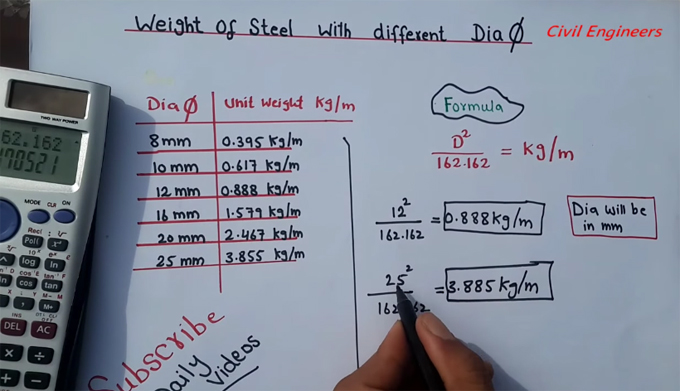 Weight Of Steel With different Dia Ø
Civil Engineers
TWO WAY POWER
62.162
MODE CLR ON
Pol( x³
log ln
cos tan
M+
DEL AC
Dia Ø Unit Weight Kg/m
8mm 0.395 Kg/m
10 mm 0.617 Kg/m
12 mm 0.888 Kg/m
16 mm 1.579 Kg/m
20 mm 2.467 Kg/m
25 mm 3.855 Kg/m
Subscribe
Daily
Videos
Formula
D²
162.162 = Kg/m
12²
162.162 = 0.888 Kg/m
Dia will be
in mm
25²
= 3.885 Kg/m